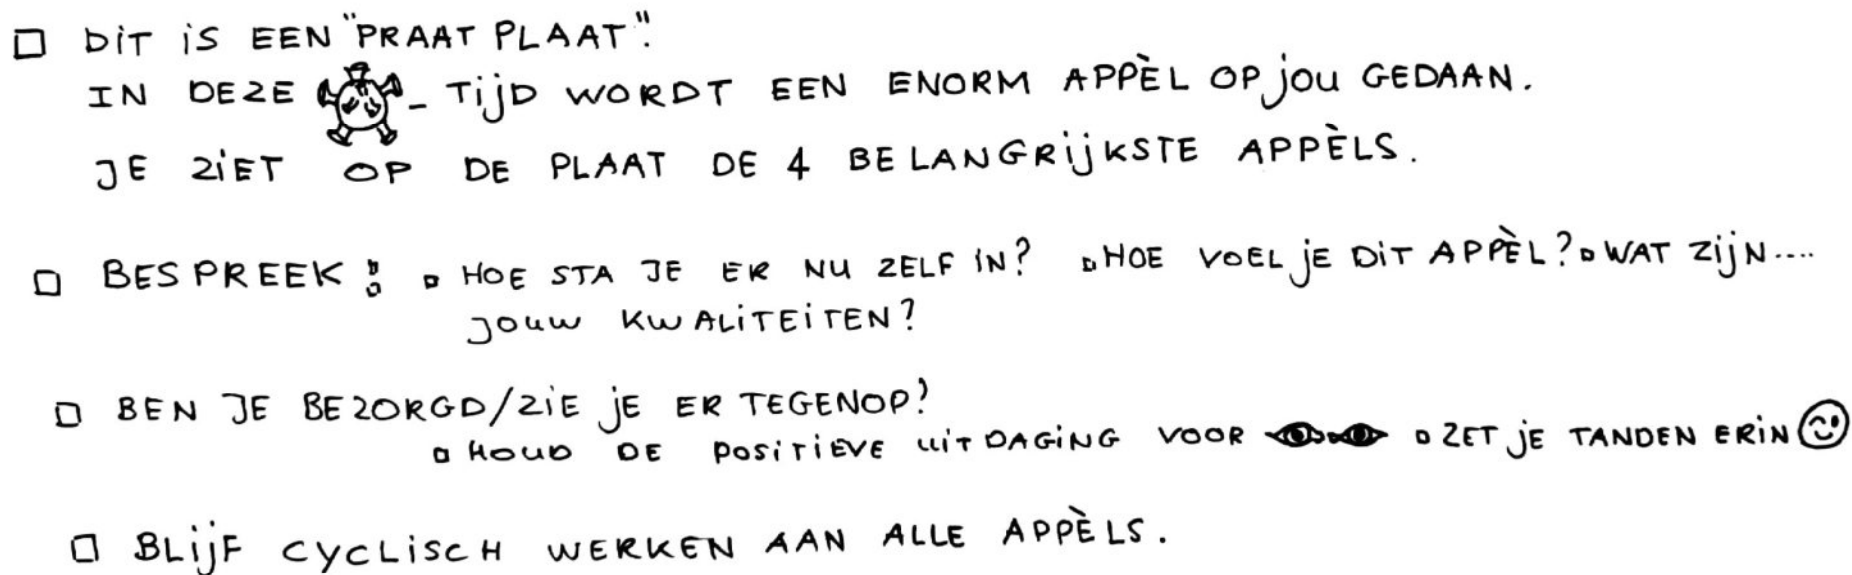 □ DIT IS EEN "PRAAT PLAAT".
IN DEZE - TIJD WORDT EEN ENORM APPÈL OP JOU GEDAAN.
JE ZIET OP DE PLAAT DE 4 BELANGRIJKSTE APPÈLS.
□ BESPREEK: □ HOE STA JE ER NU ZELF IN? □ HOE VOEL JE DIT APPÈL? □ WAT ZIJN....
JOUW KWALITEITEN?
□ BEN JE BEZORGD/ZIE JE ER TEGENOP?
□ HOUD DE POSITIEVE UITDAGING VOOR □ ZET JE TANDEN ERIN
□ BLIJF CYCLISCH WERKEN AAN ALLE APPÈLS.